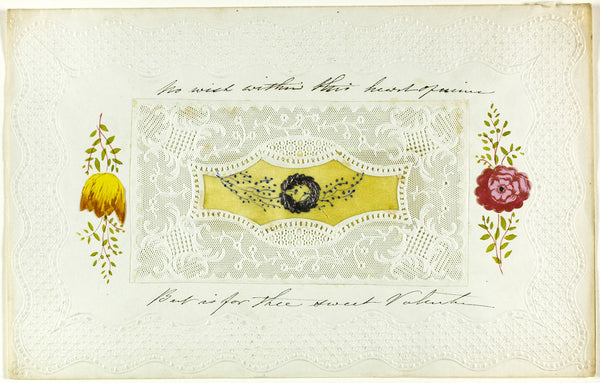 No wish within this heart of mine
But is for thee sweet Valentine